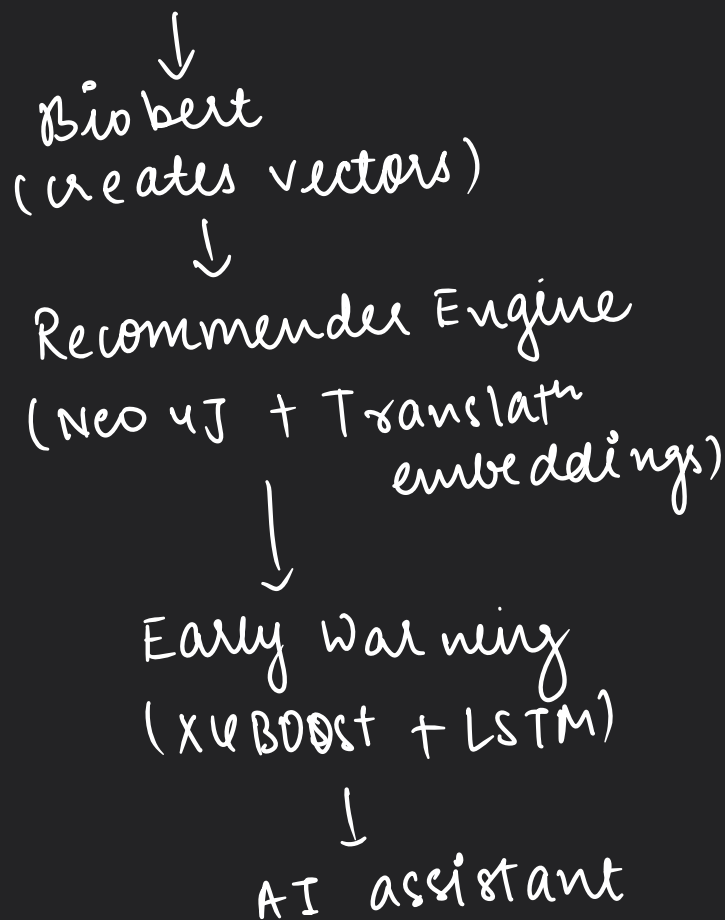 ↓
Biobert
(creates vectors)
↓
Recommender Engine
(Neo4J + Translatn
embeddings)
↓
Early Warning
(XGBOOST + LSTM)
↓
AI assistant